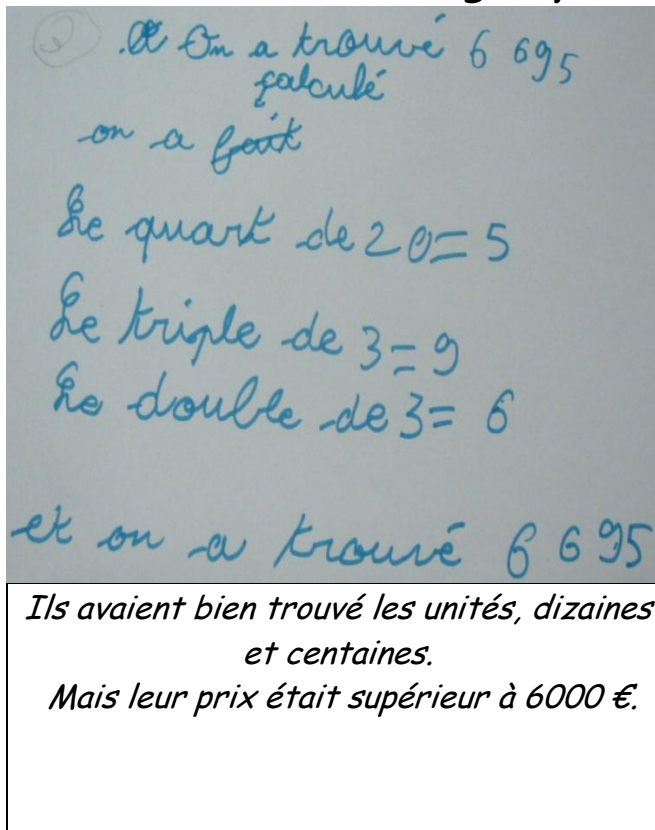 On a trouvé 6 695
calculé
on a fait
Le quart de 20=5
Le triple de 3=9
Le double de 3= 6
et on a trouvé 6 695
Ils avaient bien trouvé les unités, dizaines
et centaines.
Mais leur prix était supérieur à 6000 €.